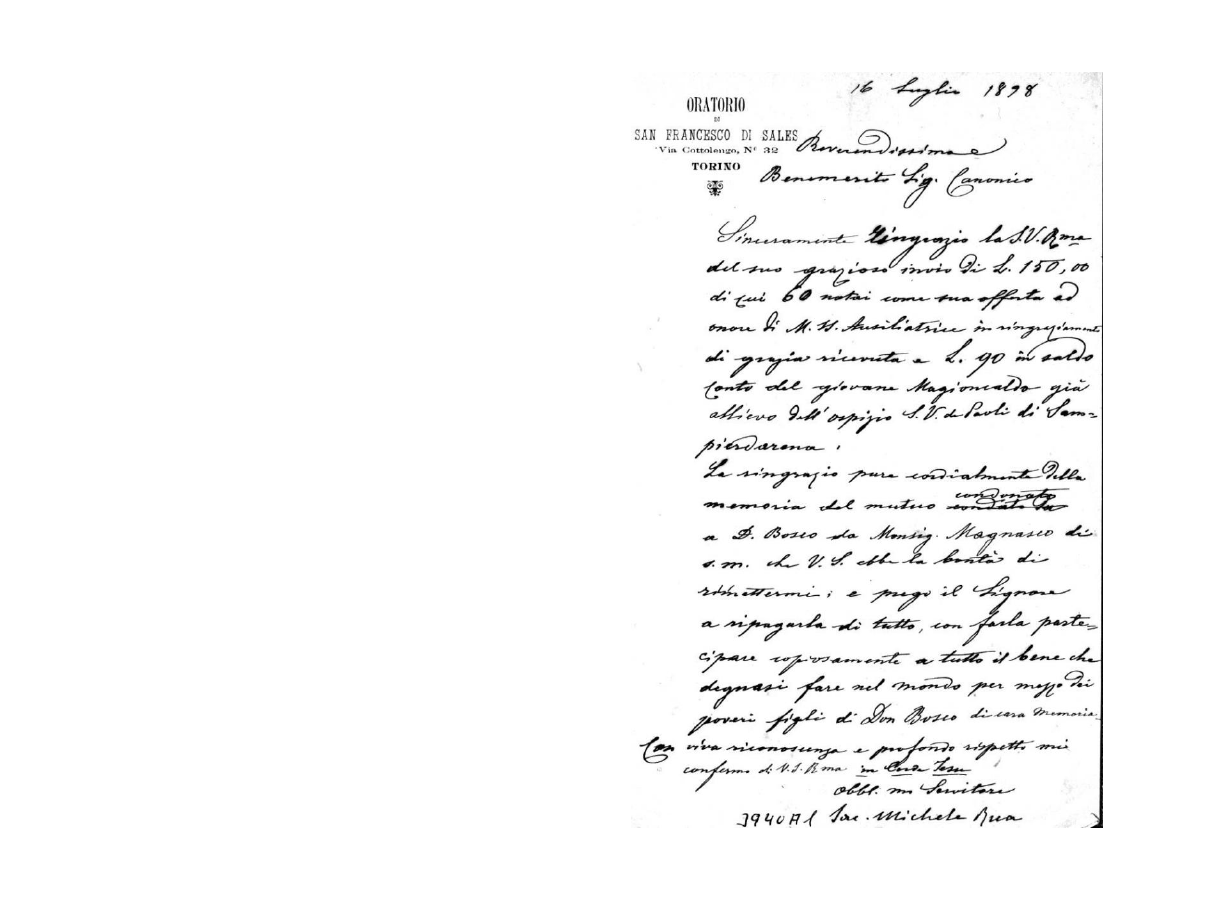 16 Luglio 1898
ORATORIO
DI
SAN FRANCESCO DI SALES
Via Cottolengo, N° 32
TORINO
Reverendissimo e
Benemerito Sig. Canonico
Sinceramente ringrazio la S.V. Rma
del suo grazioso invio di L. 150,00
di cui 60 notai come sua offerta ad
onore di M. SS. Ausiliatrice in ringraziamento
di grazia ricevuta e L. 90 in saldo
conto del giovane Magioncaldo già
allievo dell'ospizio S. V. de Paoli di Sam=
pierdarena.
La ringrazio pure cordialmente della
condonato
memoria del mutuo
a D. Bosco da Monsig. Magnasco di
s. m. che V. S. ebbe la bontà di
rimettermi; e prego il Signore
a ripagarla di tutto, con farla parte=
cipare copiosamente a tutto il bene che
degnasi fare nel mondo per mezzo dei
poveri figli di Don Bosco di cara memoria.
Con viva riconoscenza e profondo rispetto mi
confermo di V. S. Rma in Corde Jesu
Obbl. mo Servitore
Sac. Michele Rua
3940A1